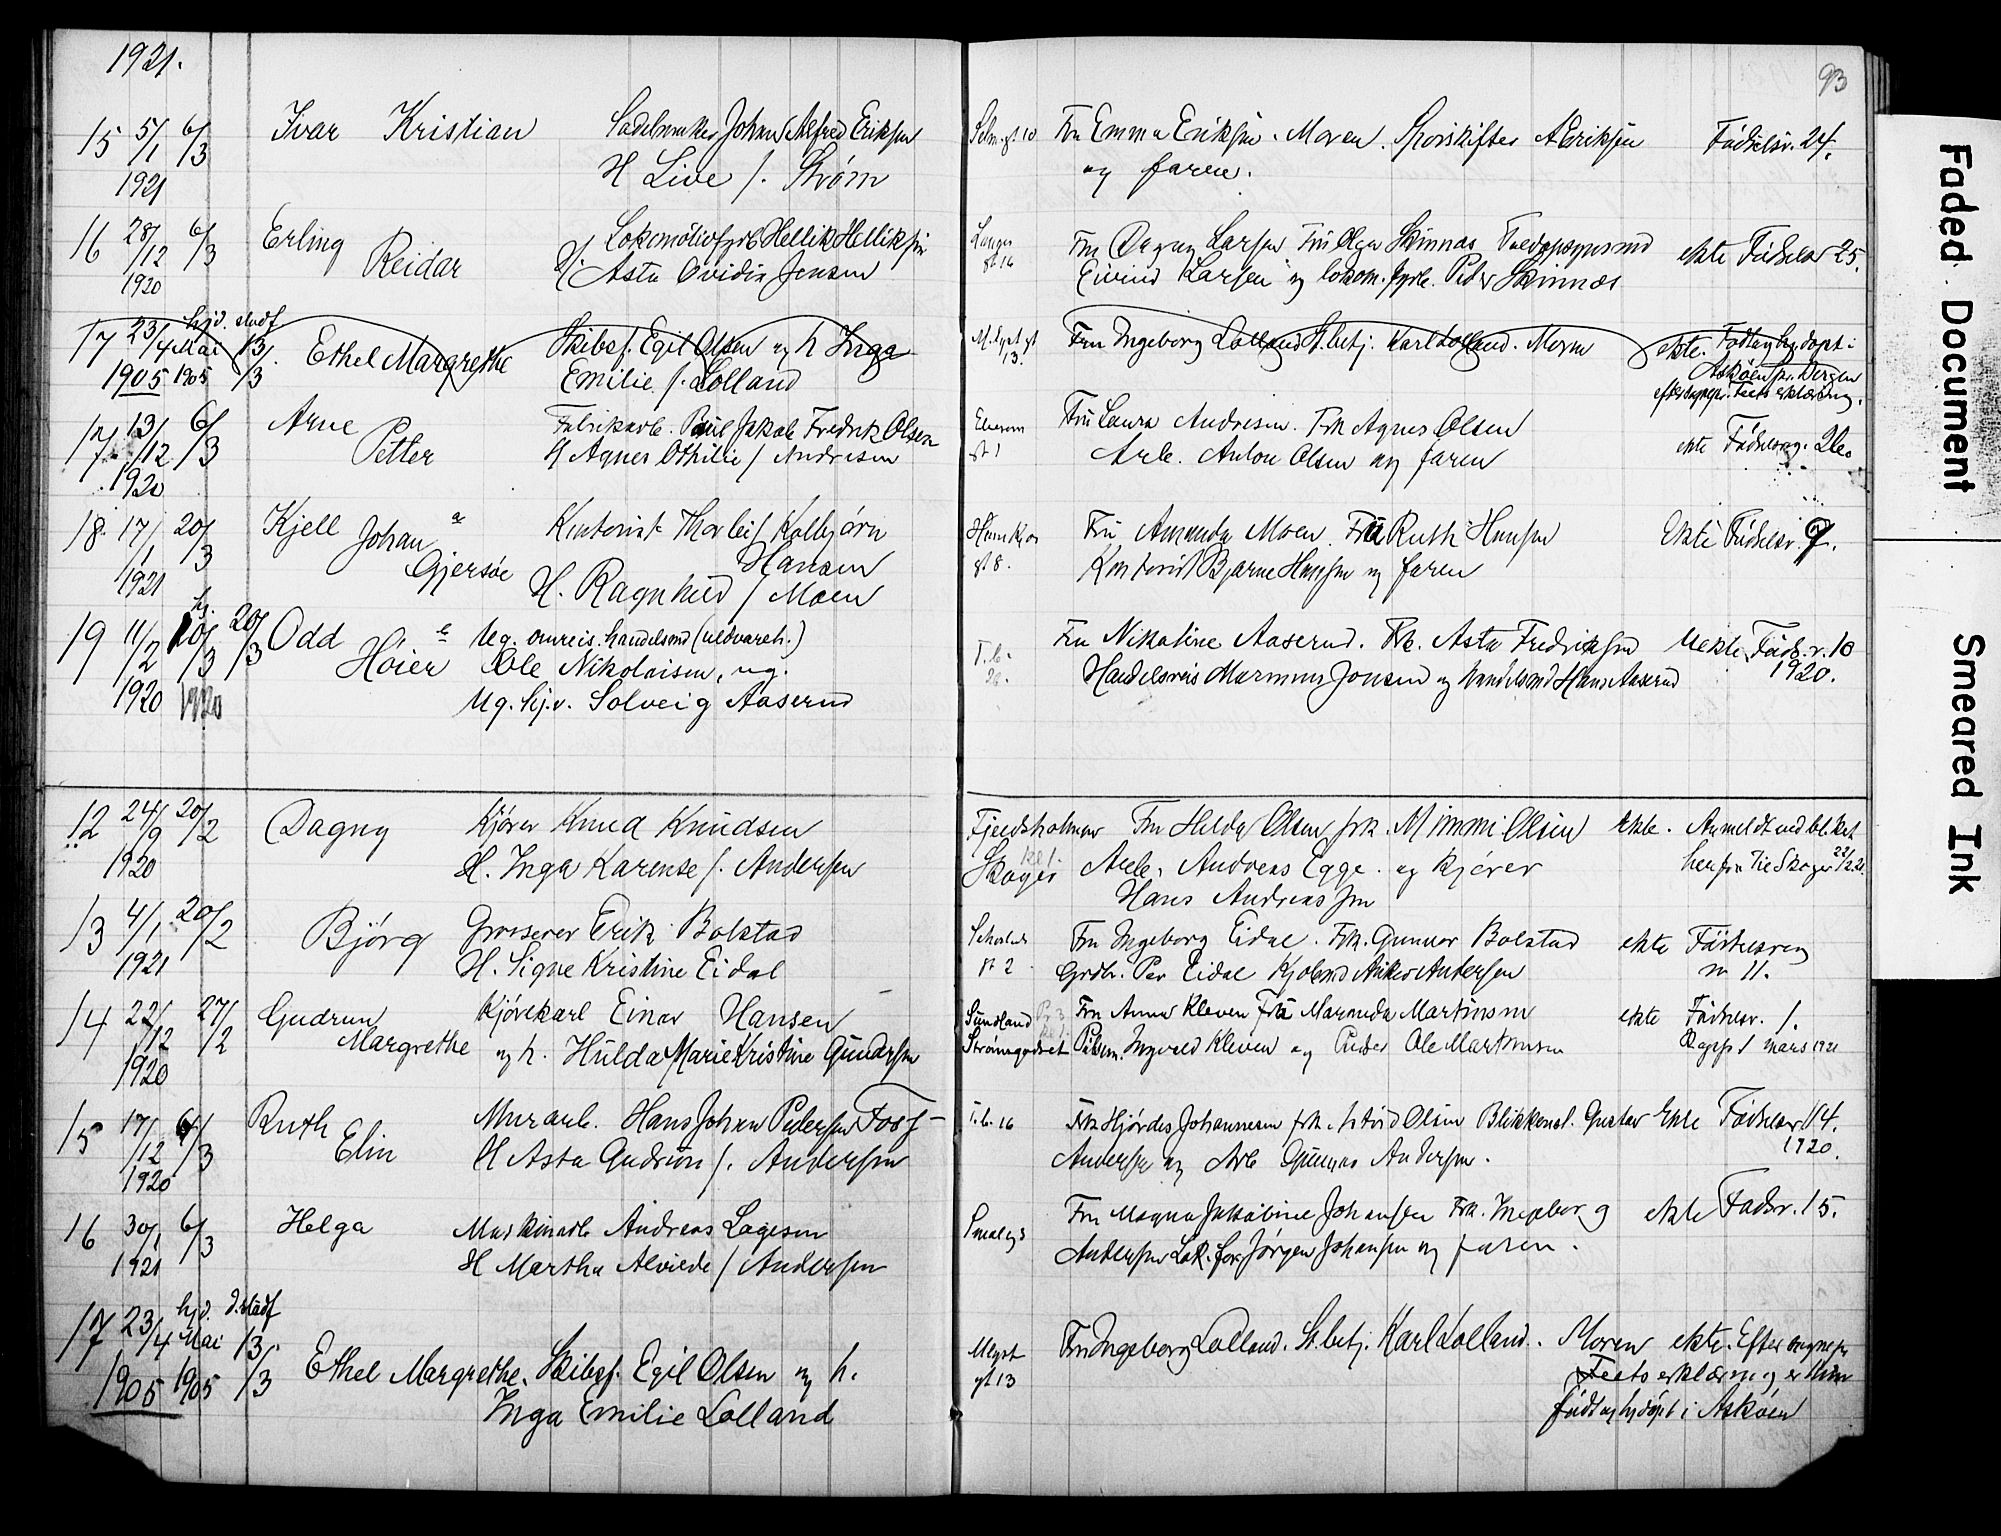 1921.
93
15 5/1 6/3 Ivar Kristian Sadelmaker Johan Alfred Eriksen
1921 H Live f. Strøm
Fru Emma Eriksen. Moren. Sporskifter A Eriksen Fødselsr. 24.
og faren.
16 28/12 6/3 Erling Lokomotivfyrb Hellik Helliksen
1920 Reidar H. Asta Ovidia Jensen
Langes gt 16 Fru Dagny Larsen Fru Olga Skinnæs ekte Fødselsr 25.
Eivind Larsen og lokom. fyrb. Peder Skinnæs
17 23/4 hjd. stadf
Mai 13/3
1905 1905 Ethel Margrethe Skibsf. Egil Olsen og h Inga
Emilie f. Lolland
13. Fru Ingeborg Lolland St.betj. Karl Lolland. Moren ekte. Født og hjdøpt i
Askøen pr. Bergen
erklæring.
17 13/12 6/3 Arne Fabrikarb. Paul Jakob Fredrik Olsen
1920 Petter H Agnes Othilie f Andresen
gt 1 Fru Laura Andresen. Frk Agnes Olsen
Arb. Anton Olsen og faren ekte Fødselsreg. 26.
18. 17/1 20/3 Kjell Johan Kontorist Thorleif Kolbjørn
1921 Gjersøe Hansen
H. Ragnhild f Moen
gt 8. Fru Amanda Moen. Fru Ruth Hansen Ekte Fødselsr. 9.
Kontorist Bjarne Hansen og faren
19 11/2 hj. 10/3 20/3 Odd Ug. omreis. handelsmd (uldvareh.)
1920 1920 Høier Ole Nikolaisen, og.
Ug. hj.v. Solveig Aaserud
Fru Nikoline Aaserud. Frk. Asta Fredriksen Uekte Føds. r. 10
Handelsreis Marinius Jonsen og handelsmd Hans Aaserud 1920.
12 24/9 20/2 Dagny Kjører Knud Knudsen
1920 H. Inga Karense f. Andersen
Fjeldsholmen Fru Helda Olsen frk. Mimmi Olsen ekte. Anmeldt ved bl.ket
Skoger Arb. Andreas Egge. og Kjører herfra til Skoger 22/2.21.
Hans Andreassen
13 4/1 20/2 Bjørg Grosserer Erik Bolstad
1921 H. Signe Kristine Eidal
gt 2 Fru Ingeborg Eidal. Frk. Gunvor Bolstad ekte Fødselsreg
Grdbr. Per Eidal Kjøbmd Anker Andersen nr 11.
14 22/12 27/2 Gudrun Kjørekarl Einar Hansen
1920 Margrethe og h. Hulda Marie Kristine Gundersen
Sundland Fru Anna Kleven Fru Maranda Martinsen ekte Fødselsr. 1.
Strømsgodset Ingvald Kleven og Ole Martinsen Opgit 1 mars 1921
15 17/12 6/3 Ruth Murarb. Hans Johan Pedersen Foss
1920 Elin H Asta Gudrun f. Andersen
T.b. 16 Frk Hjørdis Johannesen frk. Astrid Olsen Blikkensl. Gustav Ekte Fødselsr 114.
Andersen og Arb Gunnar Andersen. 1920.
16 30/1 6/3 Helga Maskinarb Andreas Lagesen
1921 H Martha Alvilde f Andersen
Fru Magna Jakobine Johansen Frk. Ingeborg ekte Fødsr. 15.
Andersen Lok. før Jørgen Johansen og faren.
17 23/4 hjd. d. stadf
Mai 13.
1905 1905 /3 Ethel Margrethe. Skibsf. Egil Olsen og h.
Inga Emilie Lolland
gt 13 Fru Ingeborg Lolland. St.betj. Karl Lolland. Moren ekte. Efter sognepr
Feets erklæring er hun
født og hjdøpt i Askøen
Faded Document
Smeared Ink